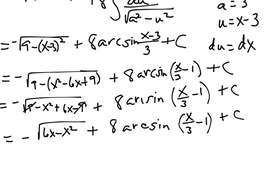 + 8∫ du/√(a² - u²)
a = 3
u = x-3
du = dx
= -√(9-(x-3)²) + 8 arcsin (x-3)/3 + C
= -√(9-(x²-6x+9)) + 8 arcsin (x/3 - 1) + C
= -√(9-x²+6x-9) + 8 arcsin (x/3 - 1) + C
= -√(6x-x²) + 8 arcsin (x/3 - 1) + C